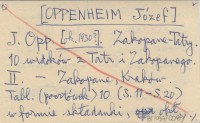 [OPPENHEIM Józef]
J. Opp. [ok. 1930?] Zakopane-Tatry.
10 widoków z Tatr i Zakopanego.
II. - Zakopane, Kraków.
Tabl. (pocztówek) 10 (S. 11 - S 20)
w formie składanki,